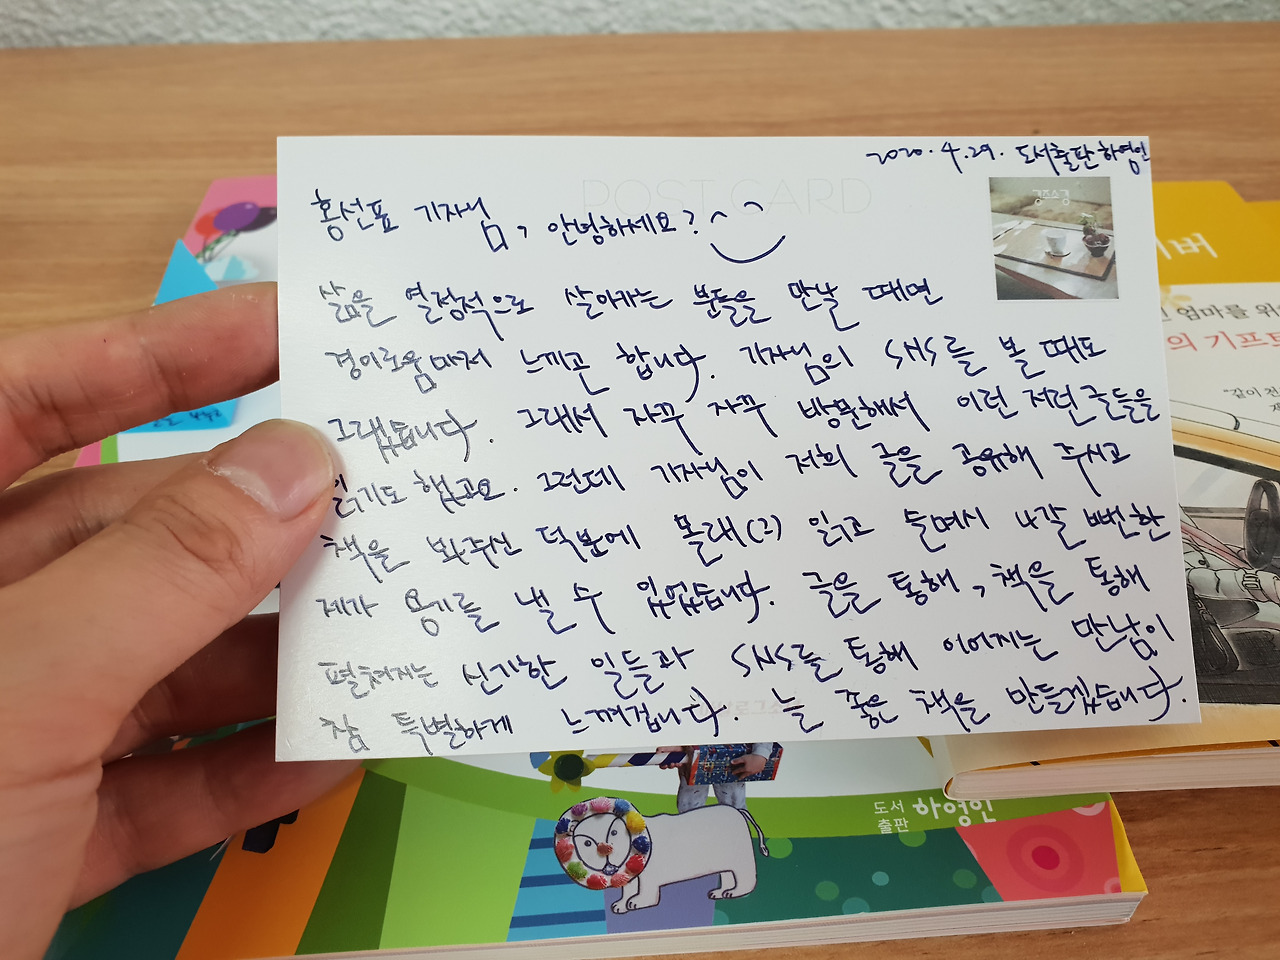 2020. 4. 29. 도서출판 하영인
POST CARD
경주소경
홍선표 기자님, 안녕하세요?
삶을 열정적으로 살아가는 분들을 만날 때면
경이로움마저 느끼곤 합니다. 기자님의 SNS를 볼 때도
그랬습니다. 그래서 자꾸 자꾸 방문해서 이런 저런 글들을
읽기도 했고요. 그런데 기자님이 저희 글을 공유해 주시고
책을 봐주신 덕분에 몰래(?) 읽고 슬며시 나갈 뻔한
제가 용기를 낼 수 있었습니다. 글을 통해, 책을 통해
펼쳐지는 신기한 일들과 SNS를 통해 이어지는 만남이
참 특별하게 느껴집니다. 늘 좋은 책을 만들겠습니다.
버
엄마를 위
의 기프트
"같이 전
도서
출판 하영인